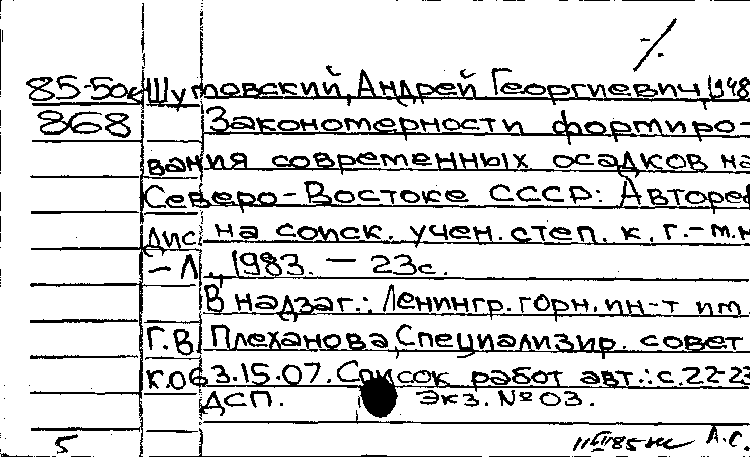 85-50к Шутовский, Андрей Георгиевич, 1948
868 Закономерности формиро-
вания современных осадков на
Северо-Востоке СССР: Авторе
дис. на соиск. учен. степ. к. г.-м.н
- Л., 1983. - 23с.
В надзаг.: Ленингр. горн. ин-т им
Г.В. Плеханова, Специализир. совет
К.063.15.07. Список работ авт.: с.22-23
ДСП. Экз. №03.
5 А.С.